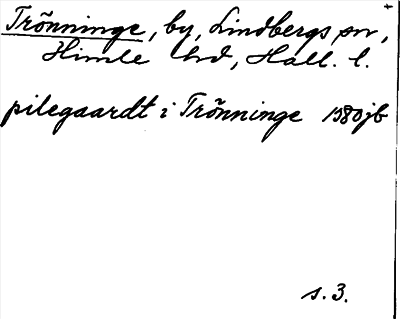 Trönninge, by, Lindbergs sn,
Himle hd, Hall. l.
pilegaardt i Trönninge 1580 jb
s. 3.